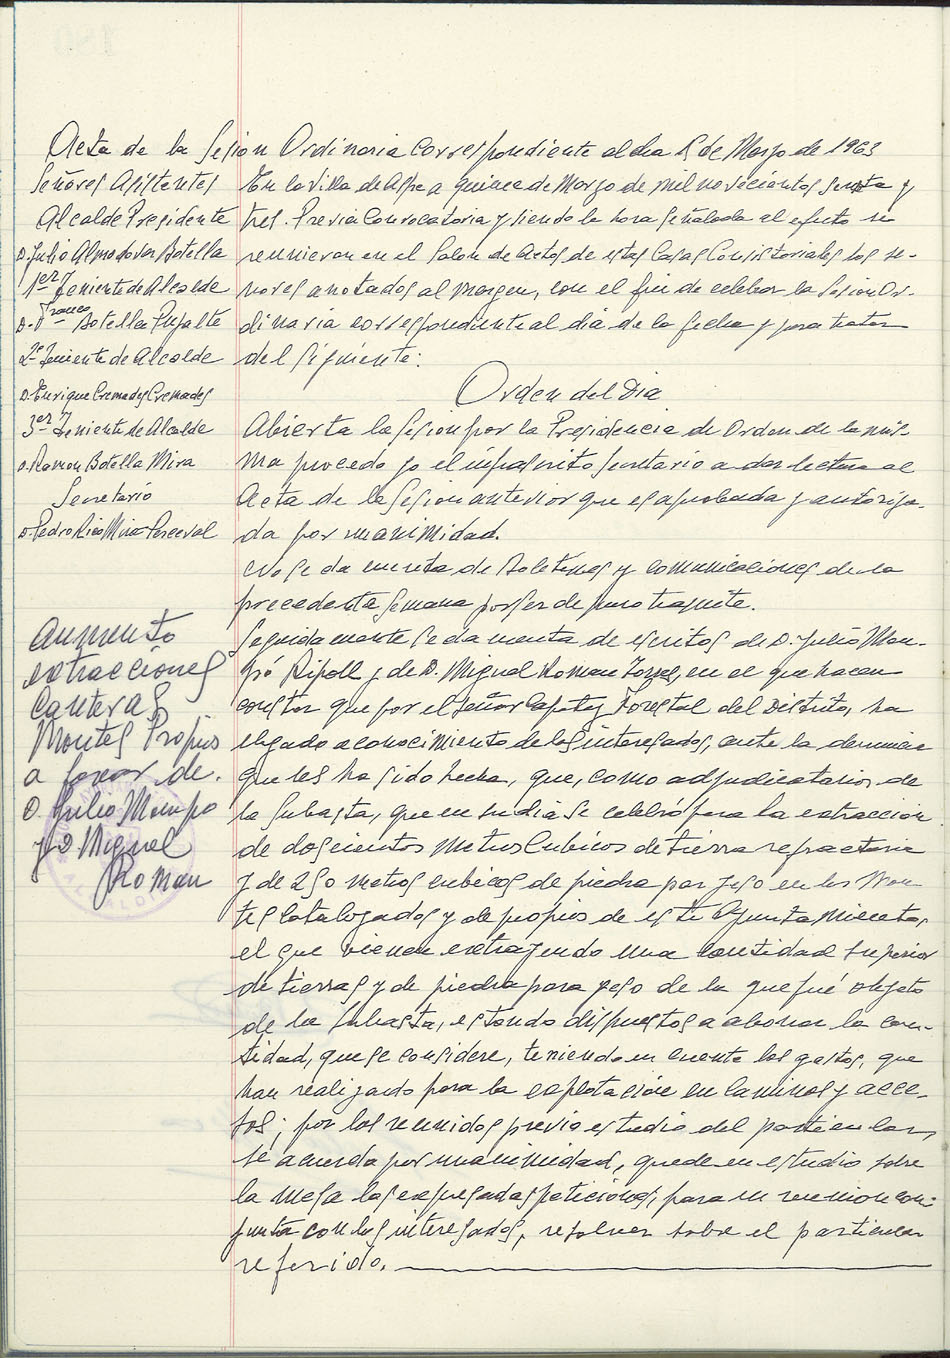 Acta de la Sesion Ordinaria correspondiente al dia 15 de Marzo de 1963
Señores Asistentes
Alcalde Presidente
D. Julio Almodovar Botella
1er Teniente de Alcalde
D. Franco Botella Pujalte
2º Teniente de Alcalde
D. Enrique Cremades Cremades
3er Teniente de Alcalde
D. Ramon Botella Mira
Secretario
D. Pedro Rico Mira-Perceval
En la Villa de Aspe a quince de Marzo de mil novecientos sesenta y
tres. Previa Convocatoria y siendo la hora señalada al efecto se
reunieron en el Salon de Actos de estas Casas Consistoriales los se-
ñores anotados al margen, con el fin de celebrar la Sesion Or-
dinaria correspondiente al dia de la fecha y para tratar
del siguiente:
Orden del Dia
Abierta la Sesion por la Presidencia de Orden de la mis-
ma procedo yo el infrascrito Secretario a dar lectura al
Acta de la Sesion anterior que es aprobada y autoriza-
da por unanimidad.
No se da cuenta de Boletines y comunicaciones de la
precedente semana por ser de puro tramite.
Aumento
extracciones
Canteras
Montes Propios
a favor de.
D. Julio Mompo
y D Miguel
Roman
ALCALDIA
Seguidamente se da cuenta de escritos de D. Julio Mom-
pó Ripoll y de D. Miguel Roman, en el que hacen
constar que por el señor Capataz Forestal del Distrito, ha
llegado a conocimiento de los interesados, ante la denuncia
que les ha sido hecha, que, como adjudicatarios de
la Subasta, que en su dia se celebró para la extraccion
de doscientos metros Cubicos de tierra refractaria
y de 250 metros cubicos de piedra par yeso en los Mon-
tes Catalogados y de propios de este Ayuntamiento,
el que vienen extrayendo una cantidad superior
de tierras y de piedra para yeso de la que fué objeto
de la Subasta, estando dispuestos a abonar la can-
tidad, que se considere, teniendo en cuenta los gastos, que
han realizado para la explotación en caminos y acce-
sos; por los reunidos previo estudio del particular,
se acuerda por unanimidad, quede en estudio sobre
la mesa las expresadas peticiones, para en reunion con-
junta con los interesados, resolver sobre el particular
referido.